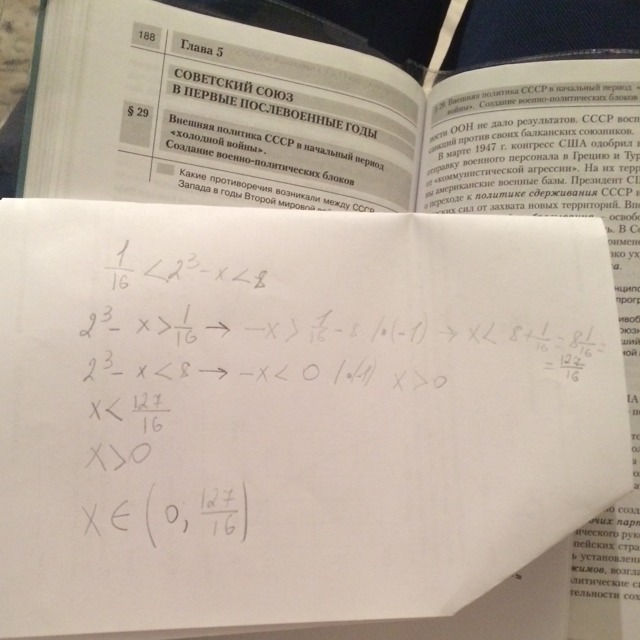 188
Глава 5
СОВЕТСКИЙ СОЮЗ
В ПЕРВЫЕ ПОСЛЕВОЕННЫЕ ГОДЫ
§ 29
Внешняя политика СССР в начальный период
«холодной войны».
Создание военно-политических блоков
Какие противоречия возникали между СССР
Запада в годы Второй мировой
§ 29. Внешняя политика СССР в начальный период «
войны». Создание военно-политических блоков
ности ООН не дало результатов. СССР
санкций против своих балканских союзников.
В марте 1947 г. конгресс США одобрил
отправку военного персонала в Грецию и
от «коммунистической агрессии». На их
американские военные базы. Президент
переходе к политике сдерживания СССР
сил от захвата новых территорий.
1/16 < 2³ - x < 8
2³ - x > 1/16 → -x > 1/16 - 8 |·(-1) → x < 8 + 1/16 = 8 1/16 =
= 127/16
2³ - x < 8 → -x < 0 |·(-1) x > 0
x < 127/16
x > 0
x ∈ (0; 127/16)